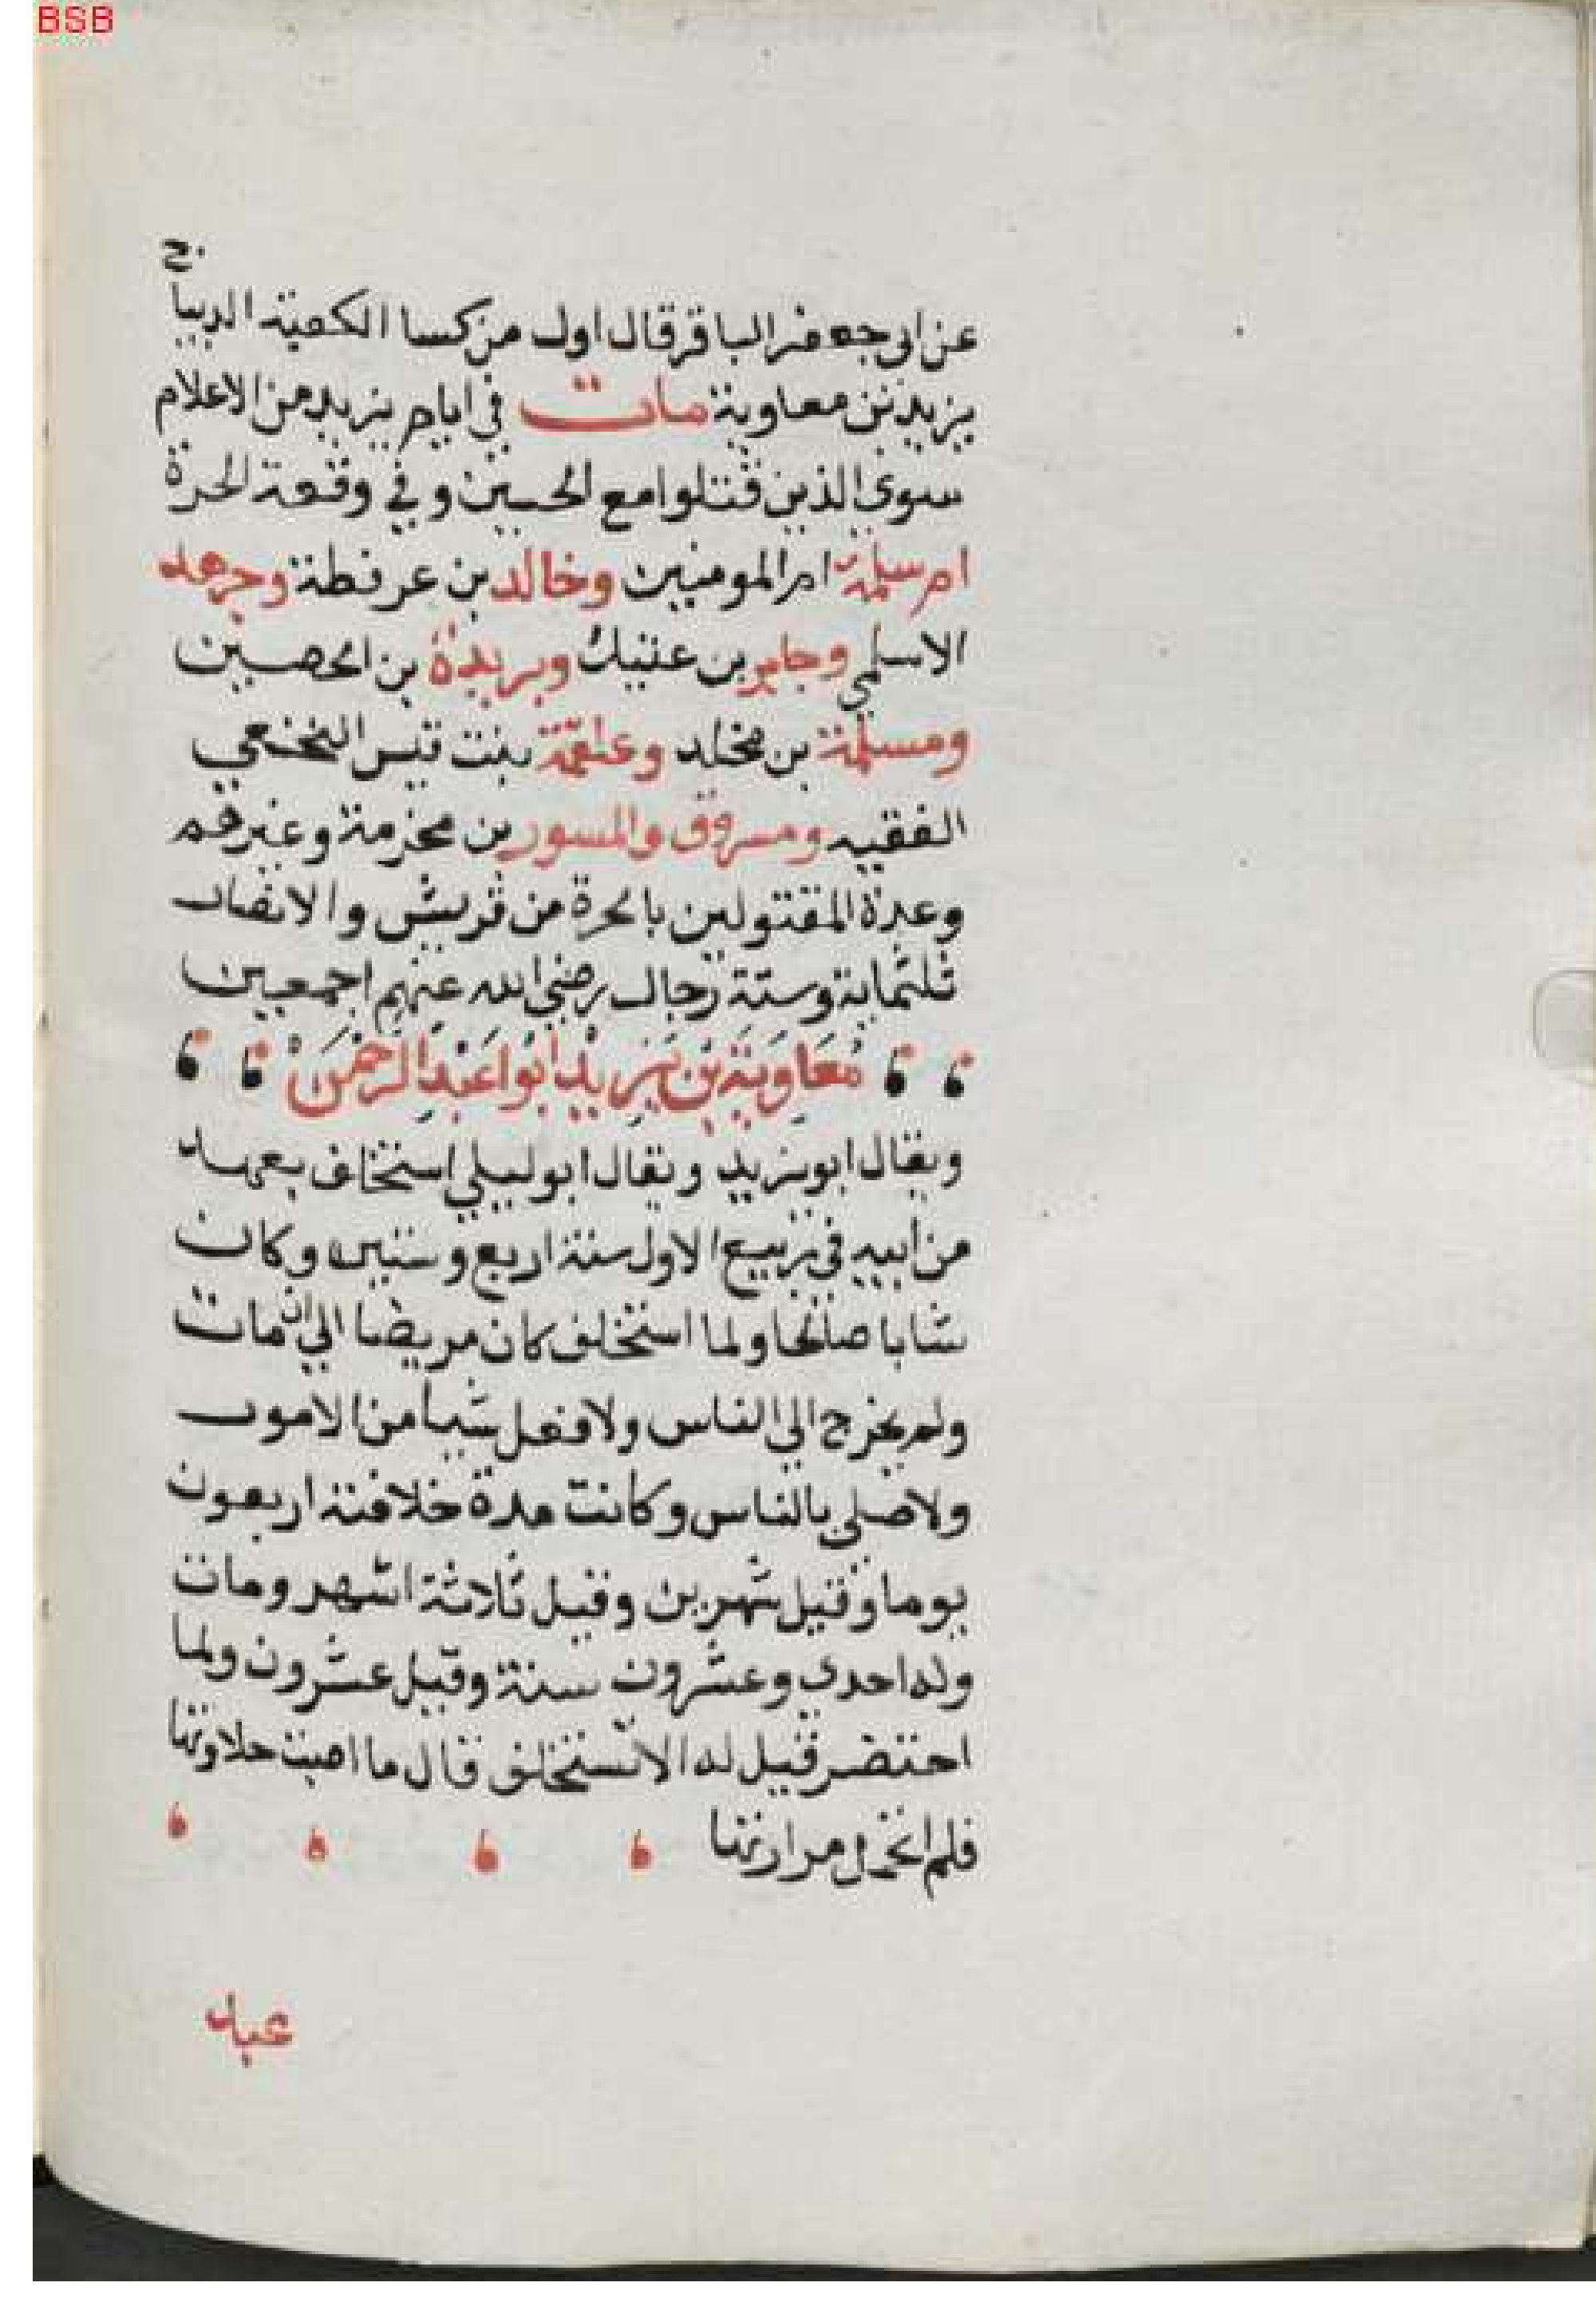 BSB
عن ابي جعفر الباقر قال اول من كسا الكعبة الديباج
يزيد بن معاوية مات في ايام يزيد من الاعلام
سوي الذين قتلوا مع الحسين وفي وقعة الحرة
ام سلمة ام المومنين وخالد بن عرفطة وجرهد
الاسلمي وجابر بن عتيك وبريدة بن الحصين
ومسلمة بن مخلد وعلقمة بنت قيس النخعي
الفقيه ومسروق والمسور بن مخرمة وغيرهم
وعدة المقتولين بالحرة من قريش والانصار
ثلثماية وستة رجال رضي الله عنهم اجمعين
مُعَاوِيَة بْن يَزِيد ابُوا عَبْد الرَّحْمَن
ويقال ابو يزيد ويقال ابو ليلي استخلف بعهد
من ابيه في ربيع الاول سنة اربع وستين وكان
شابا صالحا ولما استخلف كان مريضا الي ان مات
ولم يخرج الي الناس ولا فعل شيا من الامور
ولا صلي بالناس وكانت مدة خلافته اربعون
يوما وقيل شهرين وقيل ثلاثة اشهر ومات
وله احدي وعشرون سنة وقيل عشرون ولما
احتضر قيل له الا تستخلف قال ما اصبت حلاوتها
فلم اتحمل مرارتها
عبد